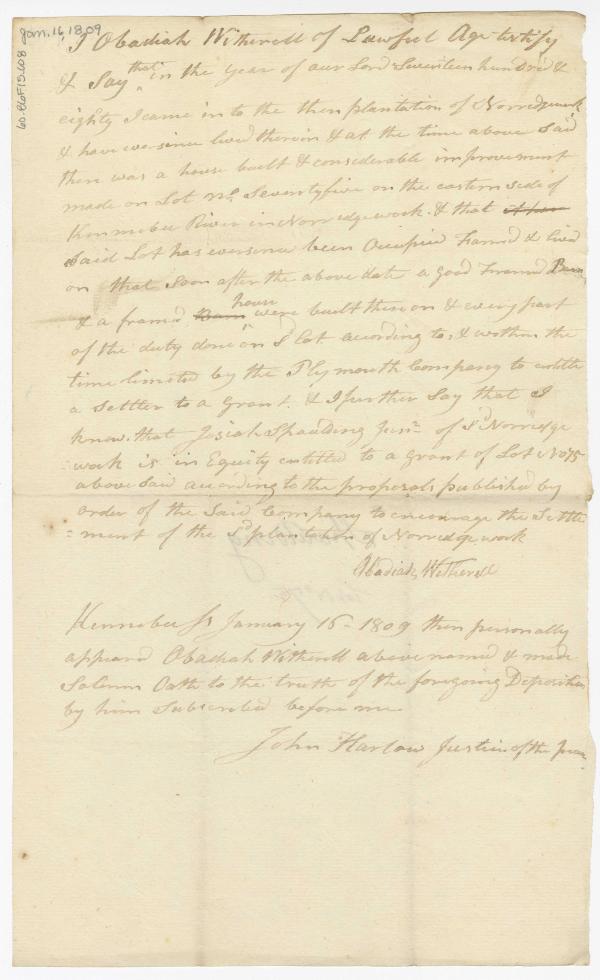 Jan. 16, 1809
I Obadiah Witherell of Lawful Age testify
& Say that in the Year of our Lord Seventeen hundred &
eighty I came in to the then plantation of Norredgework
& have ever since lived therein & at the time above Said
there was a house built & considerable improvement
made on Lot No. Seventyfive on the eastern side of
Kennebec River in Norredgework. & that
Said Lot has ever since been Occupied Farmed & lived
on that Soon after the above date a good Framed Barn
& a framed Barn house were built thereon & every part
of the duty done on Sd Lot according to, & within the
time limited by the Plymouth Company to entitle
a Settler to a Grant. & I further Say that I
know that Josiah Spaulding Junr. of Sd Norredge
work is in Equity entitled to a grant of Lot No 75
above Said according to the proposals published by
order of the Said Company to encourage the Settle
=ment of the Sd plantation of Norredgework
Obadiah Witherell
Kennebec Ss January 16- 1809 then personally
appeard Obadiah Witherell above named & made
Solemn Oath to the truth of the foregoing Deposition
by him Subscribed before me
John Harlow Justice of the Peace